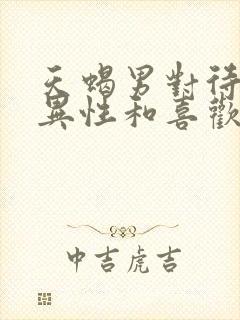 天蝎男對待
異性和喜歡
中吉虎吉